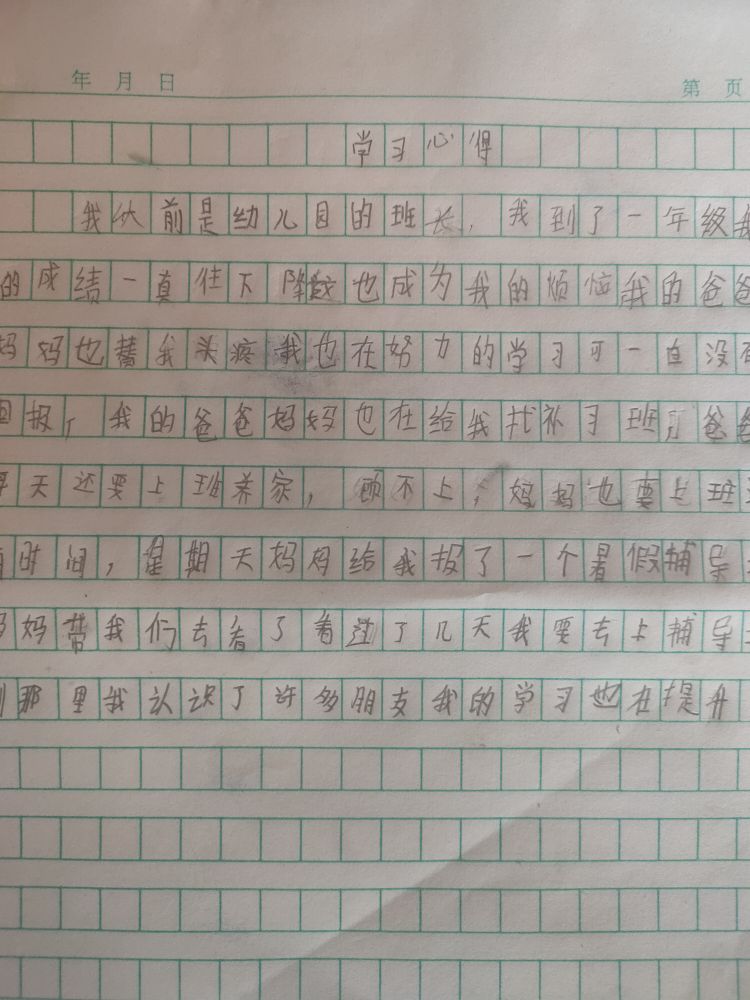 年 月 日
第 页
学习心得
我从前是幼儿园的班长,我到了一年级我
的成绩一真往下降这也成为我的烦恼我的爸爸
妈妈也替我头疼我也在努力的学习可一白没有
回报,我的爸爸妈妈也在给我找补习班,爸爸
每天还要上班养家,顾不上,妈妈也要上班
有时间,星期天妈妈给我报了一个暑假辅导
妈妈带我们去看了看过了几天我要去上辅导
到那里我认识了许多朋友我的学习也在提升